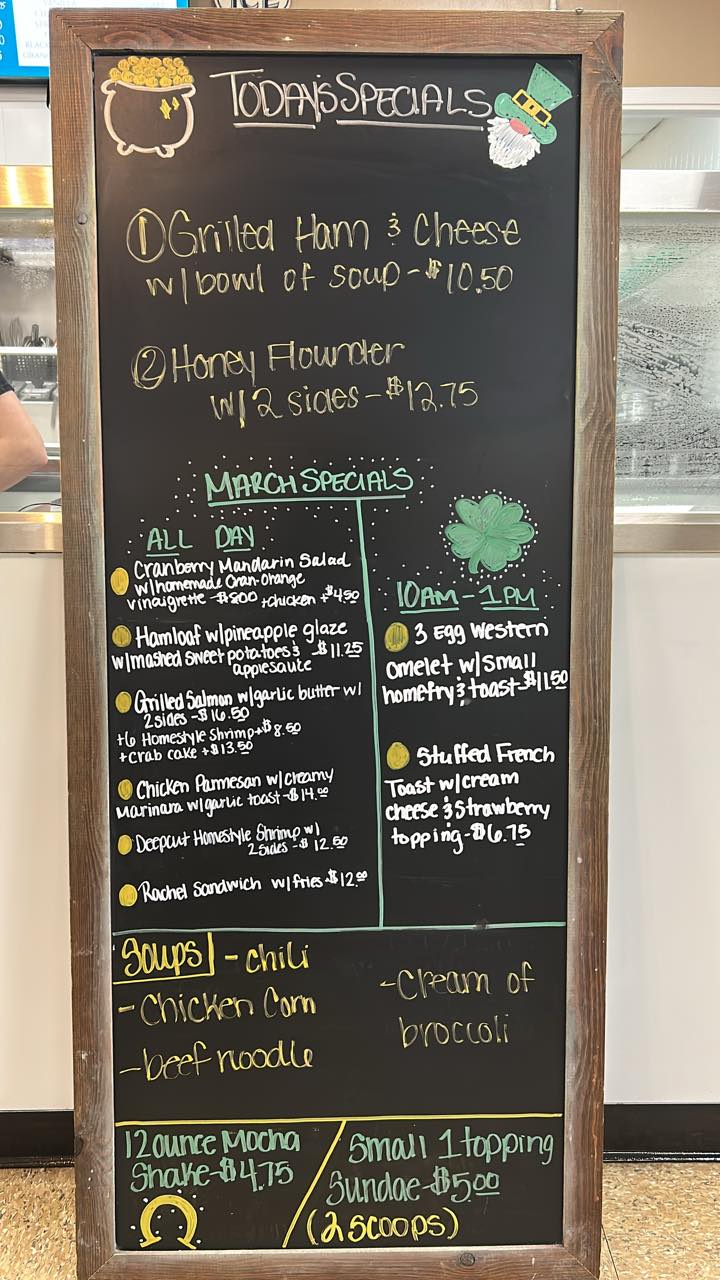 TODAY'S SPECIALS
① Grilled Ham & Cheese
w/ bowl of soup - $10.50
② Honey Flounder
w/ 2 sides - $12.75
MARCH SPECIALS
ALL DAY
Cranberry Mandarin Salad
w/homemade Cran-Orange
vinaigrette - $8.00 +chicken +$4.50
Hamloaf w/pineapple glaze
w/mashed sweet potatoes & - $11.25
applesauce
Grilled Salmon w/garlic butter w/
2 sides - $16.50
+6 Homestyle Shrimp +$8.50
+crab cake +$13.50
Chicken Parmesan w/creamy
Marinara w/garlic toast - $14.00
Deepcut Homestyle Shrimp w/
2 sides - $12.50
Rachel Sandwich w/fries - $12.00
10AM - 1PM
3 Egg Western
Omelet w/small
homefry & toast - $11.50
Stuffed French
Toast w/cream
cheese & Strawberry
topping - $6.75
Soups - chili
- Chicken Corn
- beef noodle
- Cream of
broccoli
12 ounce Mocha
Shake - $4.75
Small 1 topping
Sundae - $5.00
(2 scoops)